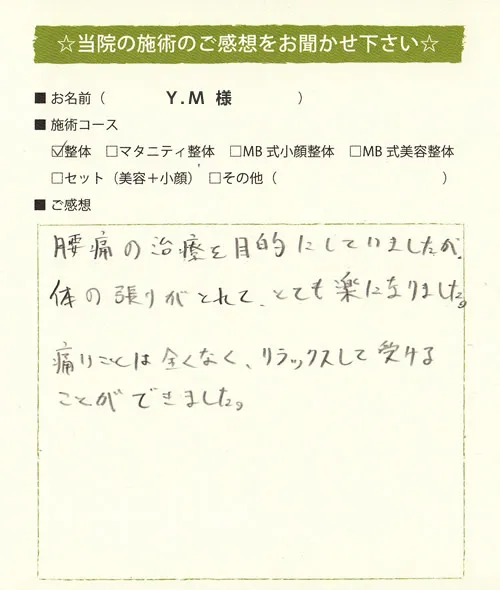 ☆当院の施術のご感想をお聞かせ下さい☆
■ お名前（ Y.M 様 ）
■ 施術コース
☑整体 □マタニティ整体 □MB式小顔整体 □MB式美容整体
□セット（美容＋小顔） □その他（ ）
■ ご感想
腰痛の治療を目的にしていましたが、
体の張りがとれて、とても楽になりました。
痛いことは全くなく、リラックスして受ける
ことができました。